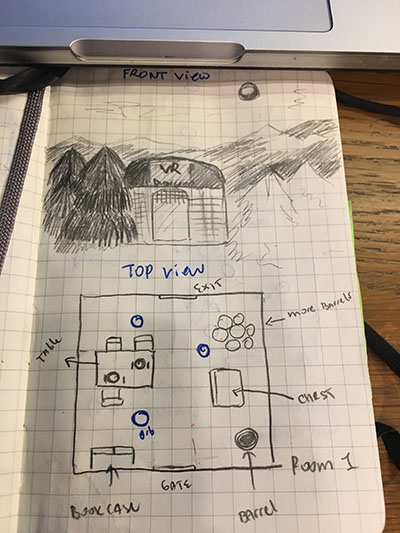 FRONT VIEW
VR
TOP VIEW
EXIT
more Barrels
Table
CHEST
Room 1
GATE
BOOKCASE
BARREL